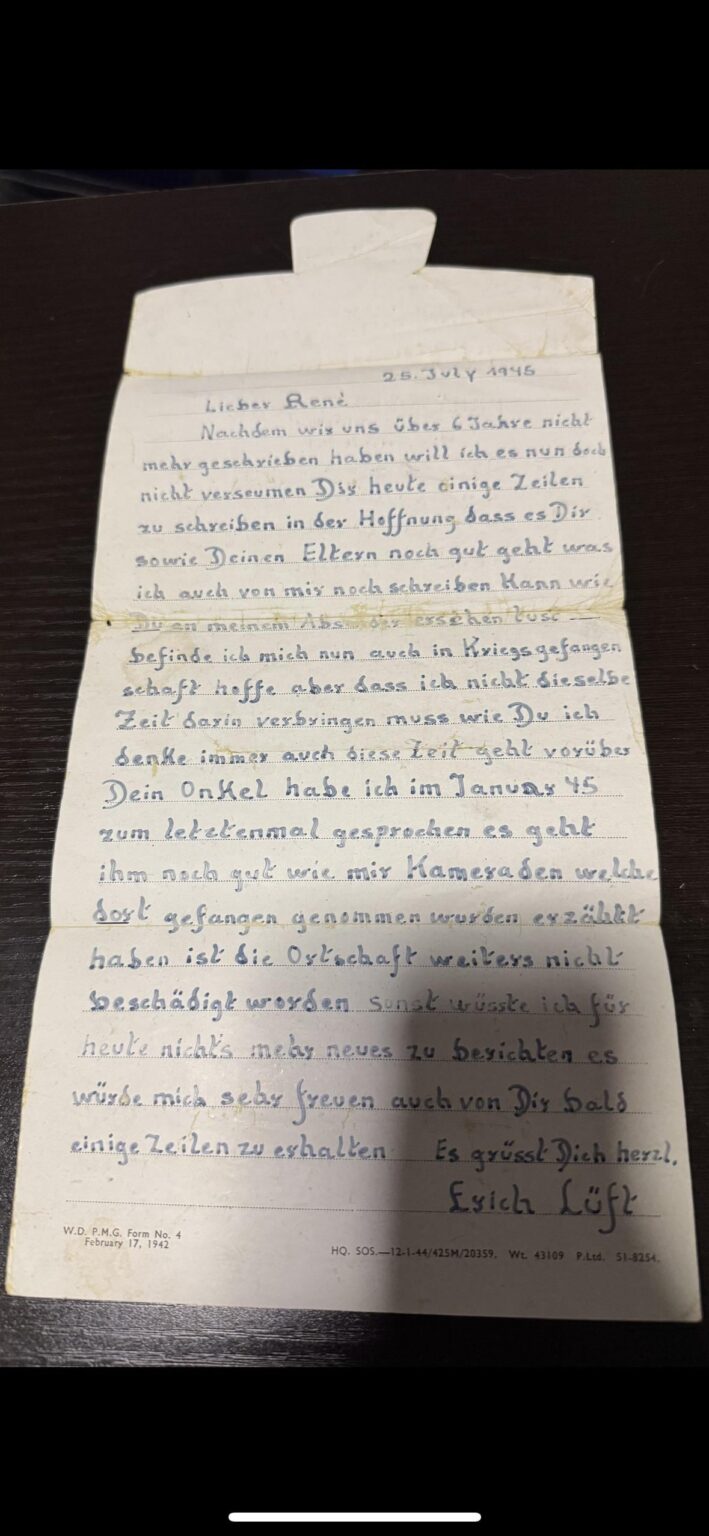 25. July 1945
Lieber René
Nachdem wir uns über 6 Jahre nicht
mehr geschrieben haben will ich es nun doch
nicht verseumen Dir heute einige Zeilen
zu schreiben in der Hoffnung dass es Dir
sowie Deinen Eltern noch gut geht was
ich auch von mir noch schreiben kann wie
Du an meinem Absender ersehen tust —
befinde ich mich nun auch in Kriegsgefangen
schaft hoffe aber dass ich nicht dieselbe
Zeit darin verbringen muss wie Du ich
denke immer auch diese Zeit geht vorüber
Dein Onkel habe ich im Januar 45
zum letztenmal gesprochen es geht
ihm noch gut wie mir Kameraden welche
dort gefangen genommen wurden erzählt
haben ist die Ortschaft weiters nicht
beschädigt worden sonst wüsste ich für
heute nichts mehr neues zu berichten es
würde mich sehr freuen auch von Dir bald
einige Zeilen zu erhalten Es grüsst Dich herzl.
Erich Lüft
W.D. P.M.G. Form No. 4
February 17, 1942
HQ. SOS.—12-1-44/425M/20359. Wt. 43109 P.Ltd. 51-8254.